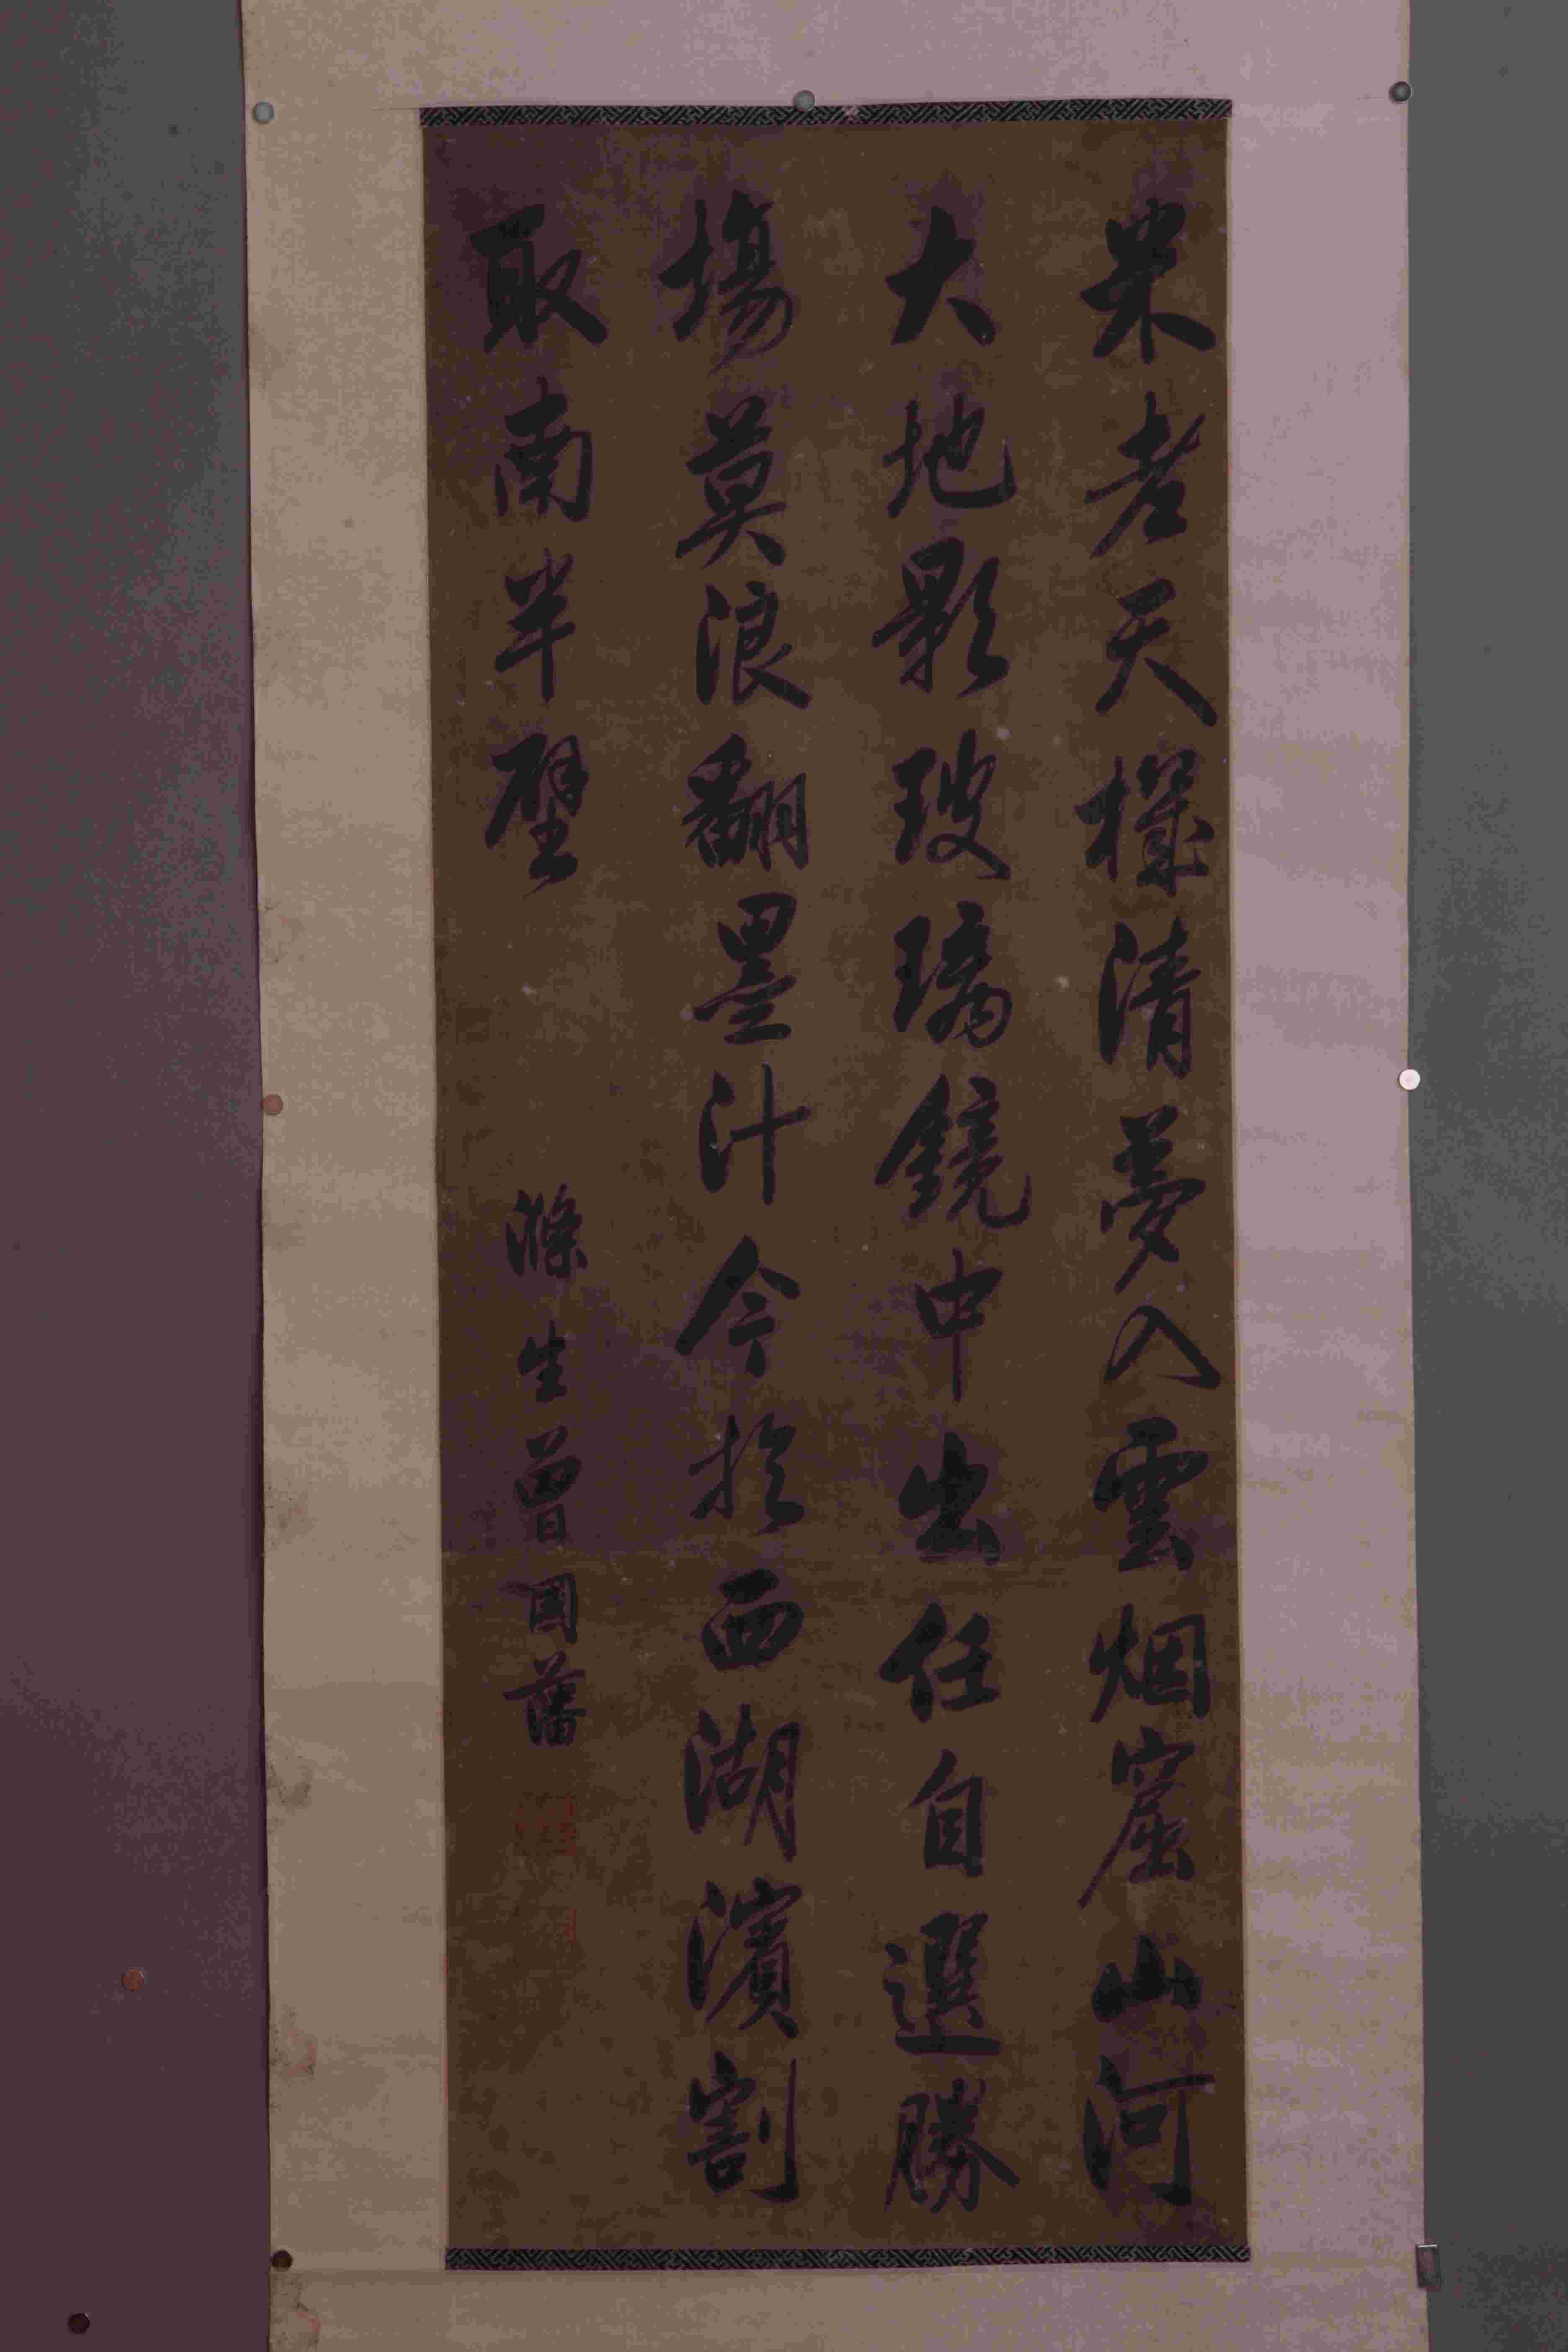 米老天機清夢入雲烟窟山河
大地影玻璃鏡中出任自選勝
場莫浪翻墨汁今於西湖濱割
取南半壁
滌生曾國藩